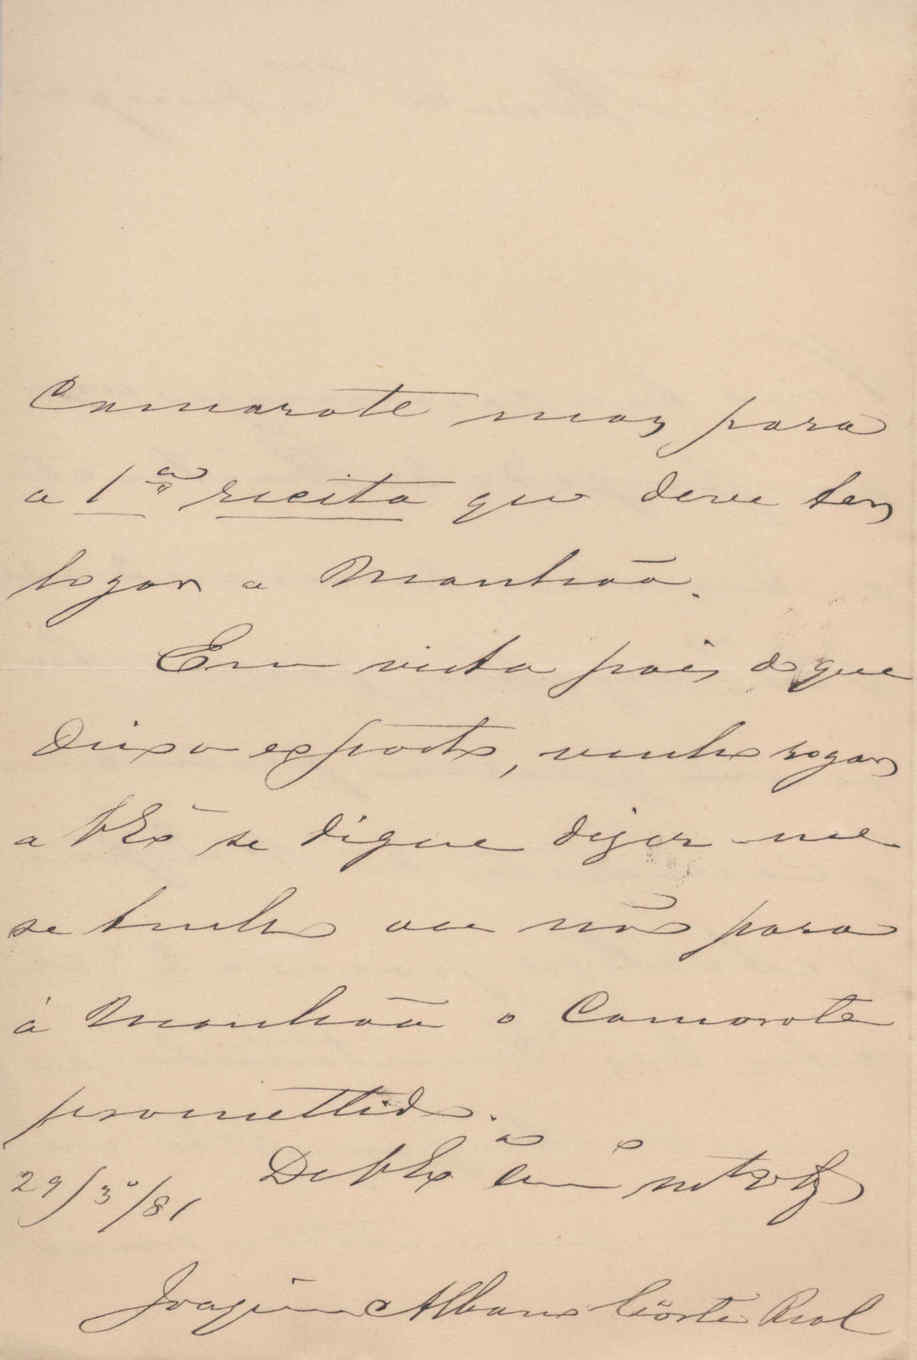 Camarote mas para
a 1ª recita que deve ter
logar a Manhãa.
Em vista pois do que
deixo exposto, venho rogar
a VExª se digne dizer me
se tenho ou não para
á Manhãa o Camarote
promettido.
29/3º/81 De VExª
Joaquim Albano Côrte Real